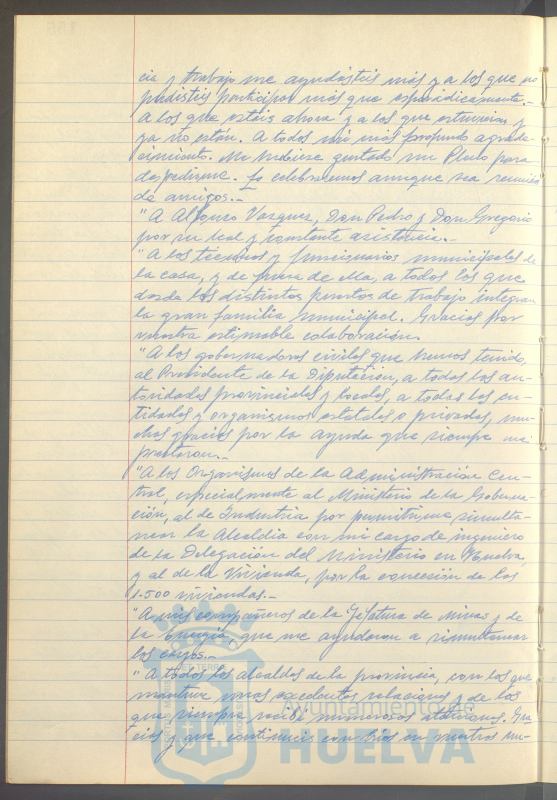 cia y trabajo me ayudásteis más y a los que no
pudisteis participar más que esporádicamente.-
A los que estáis ahora y a los que estuvieron y
ya no están. A todos mi más profundo agrade-
cimiento. Me hubiese gustado un Pleno para
despedirme. Lo celebraremos aunque sea reunión
de amigos.-
"A Alfonso Vazquez, Don Pedro y Don Gregorio
por su leal y constante asistencia.-
"A los técnicos y funcionarios municipales de
la casa, y de fuera de ella, a todos los que
desde los distintos puestos de trabajo integran
la gran familia municipal. Gracias por
vuestra estimable colaboración.
"A los gobernadores civiles que hemos tenido,
al Presidente de la Diputación, a todas las au-
toridades provinciales y locales, a todas las en-
tidades y organismos estatales o privados, mu-
chas gracias por la ayuda que siempre me
prestaron.-
"A los Organismos de la Administración Cen-
tral, especialmente al Ministerio de la Goberna-
ción, al de Industria por permitirme simulta-
near la Alcaldia con mi cargo de ingeniero
de la Delegación del Ministerio en Huelva,
y al de la Vivienda, por la concesión de las
1.500 viviendas.-
"A mis compañeros de la Jefatura de Minas y de
la Energía, que me ayudaron a simultanear
los cargos.-
"A todos los alcaldes de la provincia, con los que
mantuve unas excelentes relaciones y de los
que siempre recibí numerosas atenciones. Gra-
cias y que continueis con bríos en vuestros mu-
Ayuntamiento de
HUELVA